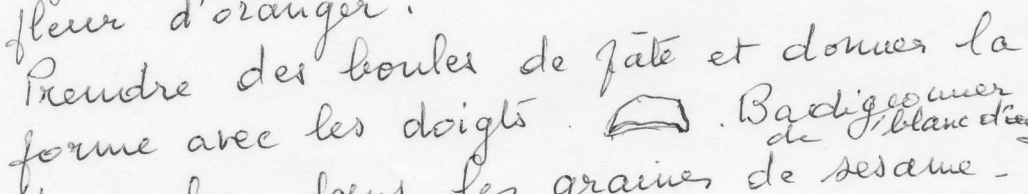 fleur d'oranger.
Prendre des boules de pâte et donner la
forme avec les doigts. . Badigeonner
de blanc d'oeuf
les graines de sesame -